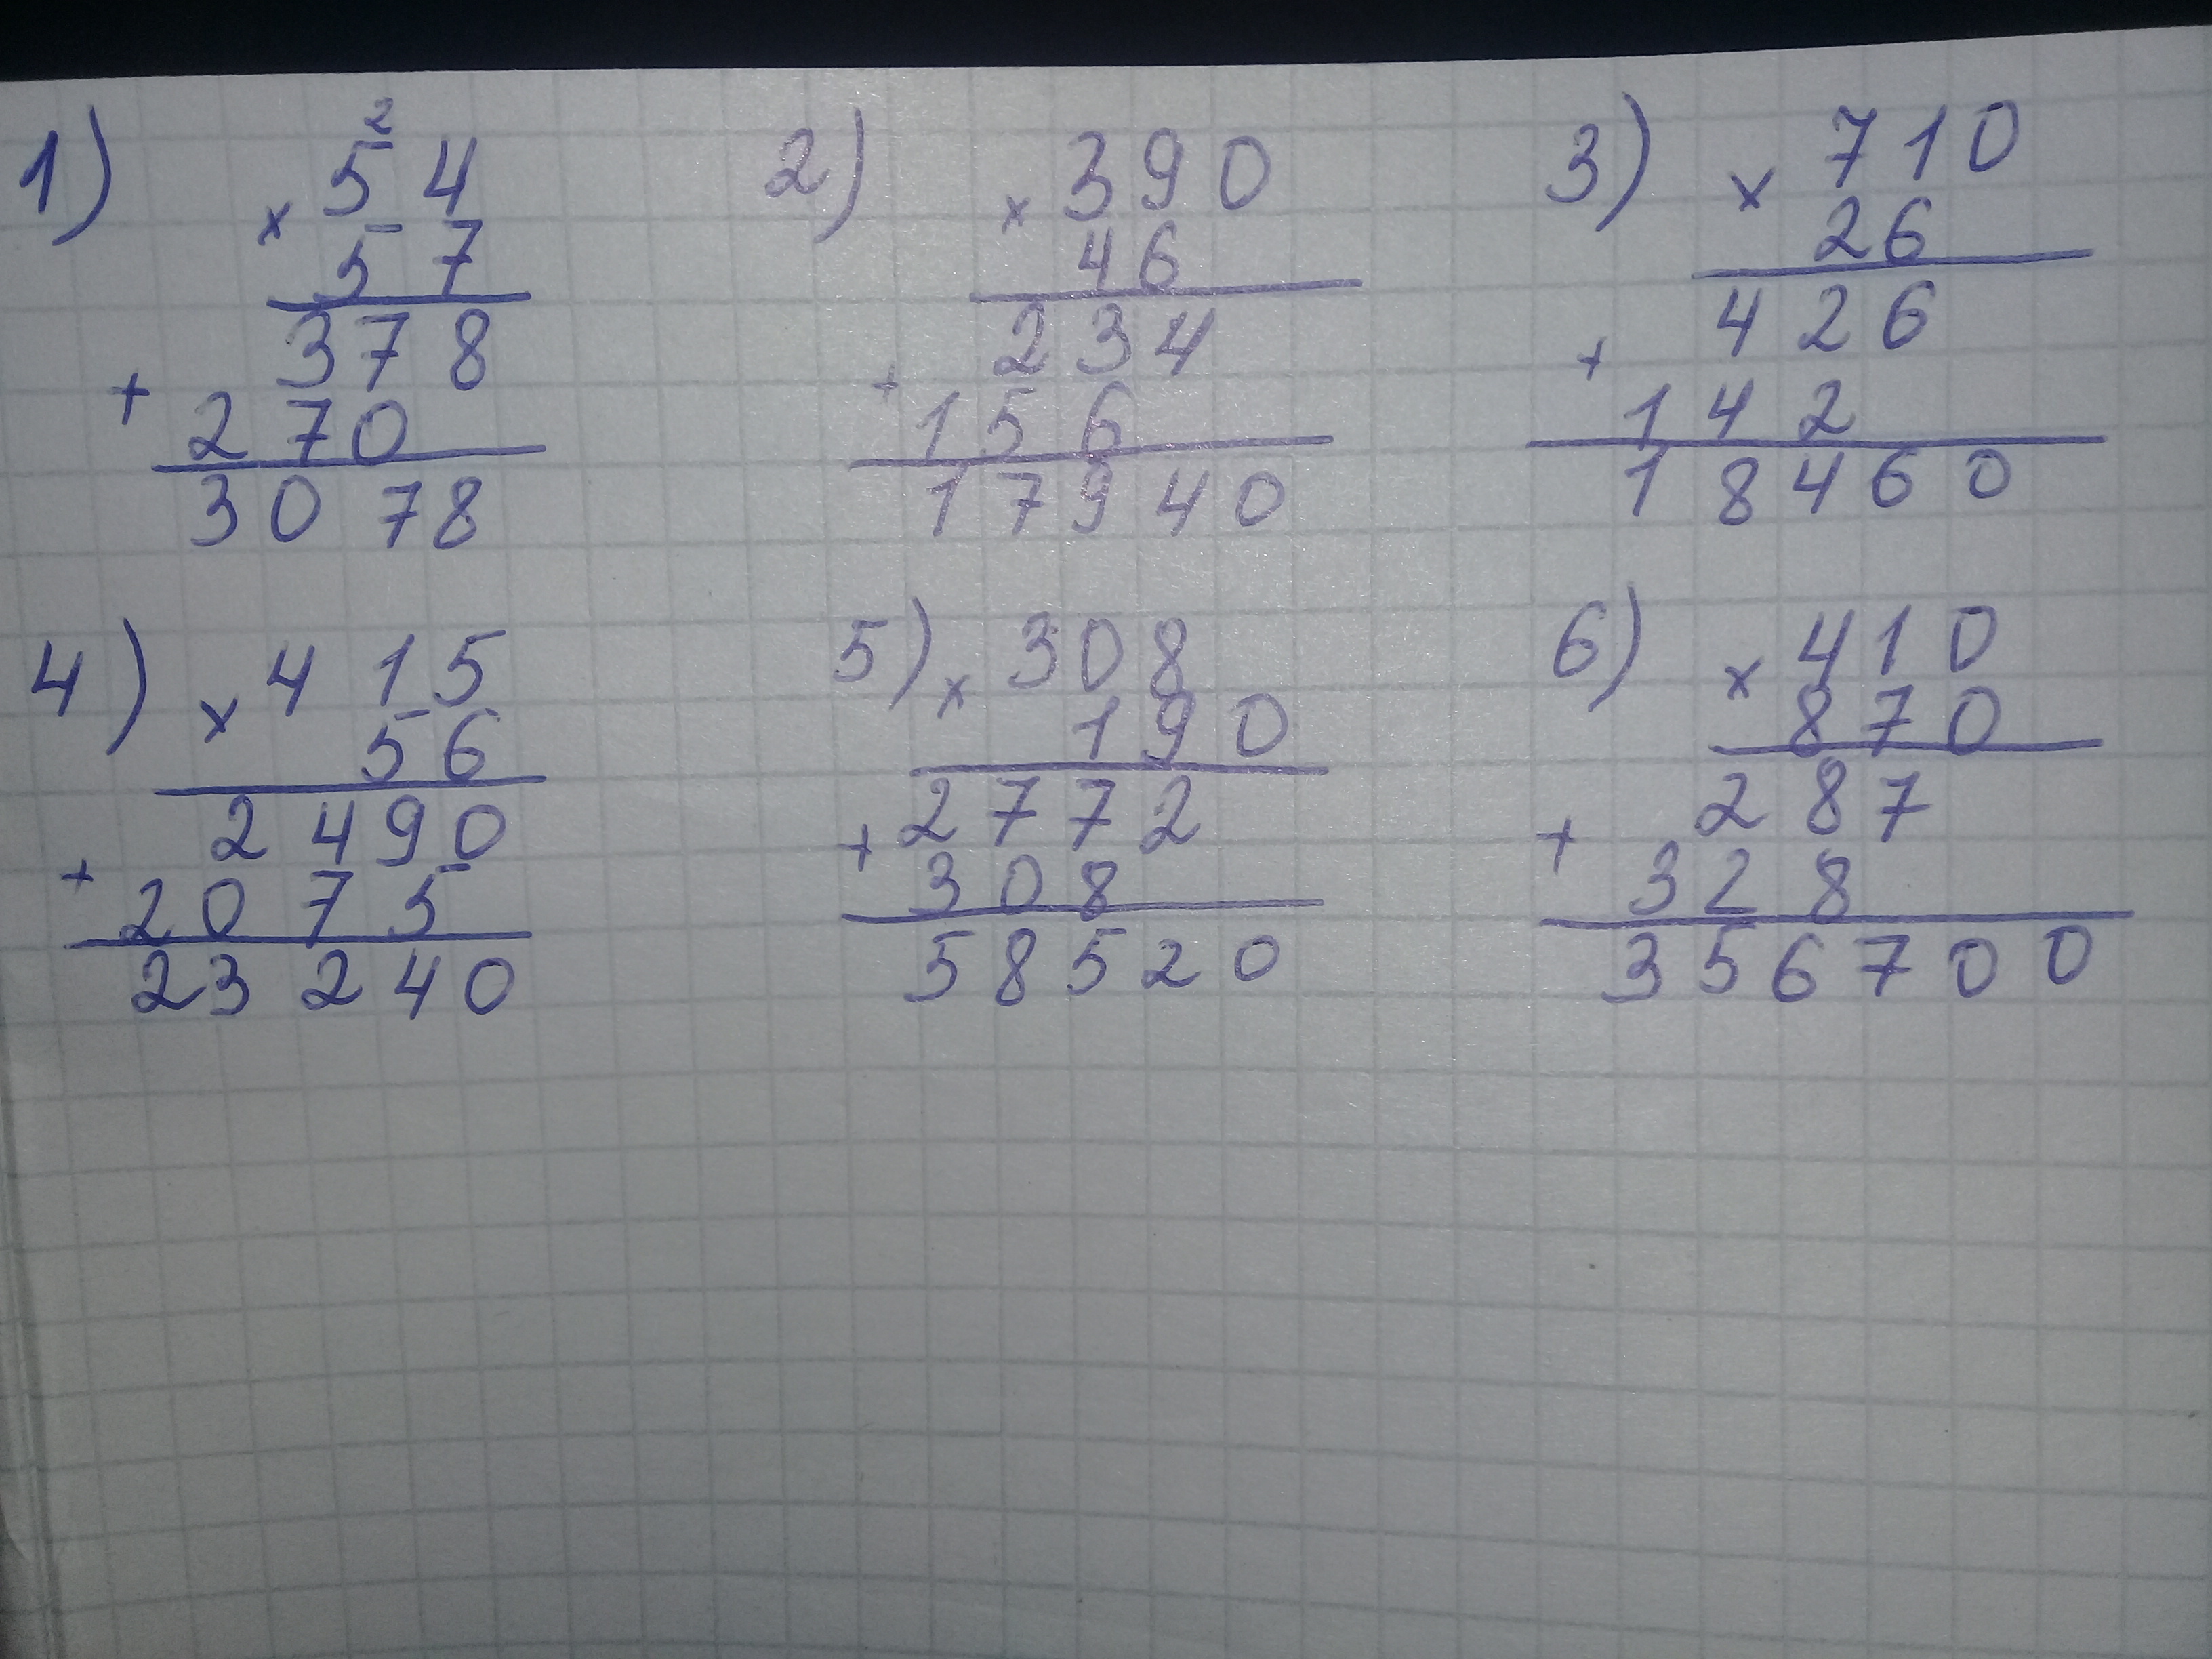 1) 2
× 54
57
378
+ 270
3078
2) × 390
46
234
+ 156
17940
3) × 710
26
426
+ 142
18460
4) × 415
56
2490
+ 2075
23240
5) × 308
190
2772
+ 308
58520
6) × 410
870
287
+ 328
356700